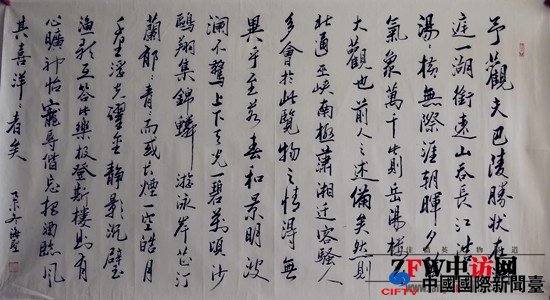 予觀夫巴陵勝狀在
庭一湖銜遠山吞長江浩
湯〻橫無際涯朝暉夕
氣象萬千此則岳陽樓
大觀也前人之述備矣然則
北通巫峽南極瀟湘遷客騷人
多會於此覽物之情得無
異乎至若春和景明波
瀾不驚上下天光一碧萬頃沙
鷗翔集錦鱗游泳岸芷汀
蘭郁〻青〻而或長煙一空皓月
千里浮光躍金靜影沉璧
漁歌互答此樂極登斯樓有
心曠神怡寵辱偕忘把酒臨風
其喜洋〻者矣
ZFW中访网
CIFTV 中國國際新聞臺